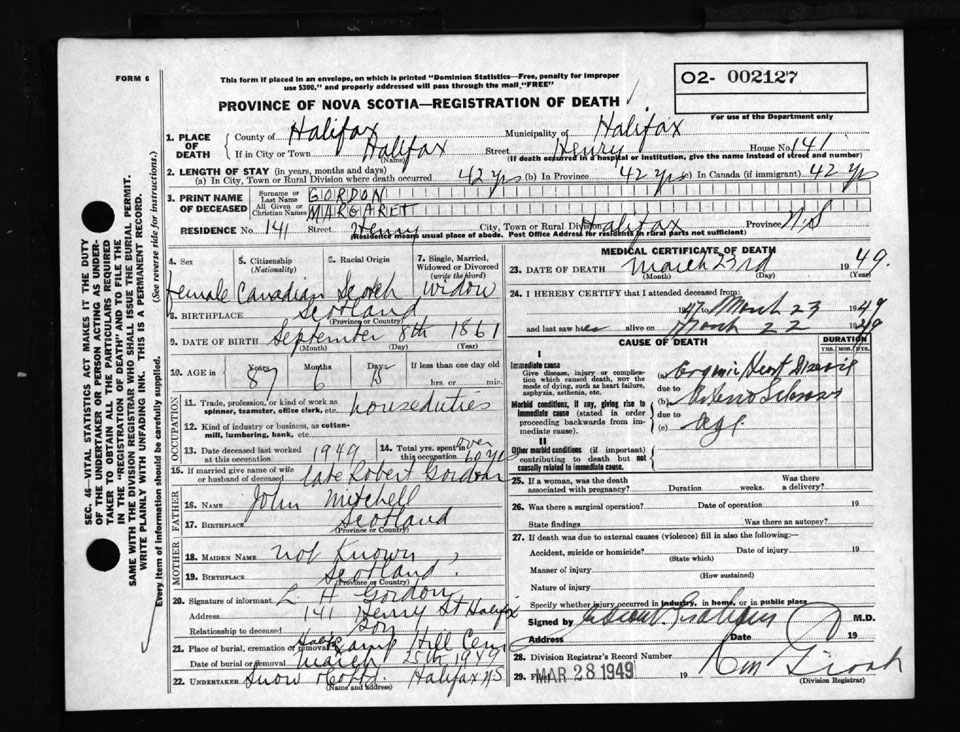 FORM 6
This form if placed in an envelope, on which is printed "Dominion Statistics—Free, penalty for improper
use $300," and properly addressed will pass through the mail "FREE"
O2- 002127
For use of the Department only
PROVINCE OF NOVA SCOTIA—REGISTRATION OF DEATH
1. PLACE OF DEATH
County of Halifax Municipality of Halifax
If in City or Town Halifax (Name) Street Henry House No. 141
(If death occurred in a hospital or institution, give the name instead of street and number)
2. LENGTH OF STAY (in years, months and days)
(a) In City, Town or Rural Division where death occurred 42 yrs (b) In Province 42 yrs (c) In Canada (if immigrant) 42 yrs
3. PRINT NAME OF DECEASED
Surname or Last Name GORDON
All Given or Christian Names MARGARET
RESIDENCE No. 141 Street Henry City, Town or Rural Division Halifax Province N.S
(Residence means usual place of abode. Post Office Address for residents in rural parts not sufficient)
4. Sex 5. Citizenship (Nationality) 6. Racial Origin 7. Single, Married, Widowed or Divorced (write the word)
Female Canadian Scotch Widow
8. BIRTHPLACE Scotland
(Province or Country)
9. DATE OF BIRTH September 8th 1861
(Month) (Day) (Year)
10. AGE in Years Months Days If less than one day
87 6 15 hrs. or min.
OCCUPATION
11. Trade, profession, or kind of work as spinner, teamster, office clerk, etc. houseduties
12. Kind of industry or business, as cotton-mill, lumbering, bank, etc.
13. Date deceased last worked at this occupation 1949 14. Total yrs. spent in this occupation over 60 yrs
15. If married give name of wife or husband of deceased late Robert Gordon
FATHER
16. Name John Mitchell
17. Birthplace Scotland
(Province or Country)
MOTHER
18. MAIDEN NAME not known
19. Birthplace Scotland
(Province or Country)
20. Signature of informant L H Gordon
Address 141 Henry St Halifax
Relationship to deceased Son
21. Place of burial, cremation or removal Halifax Camp Hill Cem
Date of burial or removal March 25th 1949
22. UNDERTAKER Snow & Co Ltd. Halifax N.S
(Name and address)
MEDICAL CERTIFICATE OF DEATH
23. DATE OF DEATH March 23rd 1949.
(Month) (Day) (Year)
24. I HEREBY CERTIFY that I attended deceased from:
47 to March 23 1949
and last saw her alive on March 22 1949
CAUSE OF DEATH
DURATION
YRS. MOS. DYS.
I
Immediate cause
Give disease, injury or complication which caused death, not the mode of dying, such as heart failure, asphyxia, asthenia, etc.
(a) Organic Heart Disease
due to
Morbid conditions, if any, giving rise to immediate cause (stated in order proceeding backwards from immediate cause).
(b)
due to
(c) Age
II
Other morbid conditions (if important) contributing to death but not causally related to immediate cause.
25. If a woman, was the death associated with pregnancy? Duration weeks. Was there a delivery?
26. Was there a surgical operation? Date of operation 19
State findings Was there an autopsy?
27. If death was due to external causes (violence) fill in also the following:—
Accident, suicide or homicide? Date of injury 19
(State which)
Manner of injury
(How sustained)
Nature of injury
Specify whether injury occurred in industry, in home, or in public place
Signed by M.D.
Address Date 19
28. Division Registrar's Record Number
29. Filed MAR 28 1949 19
(Division Registrar)
SEC. 46 VITAL STATISTICS ACT MAKES IT THE DUTY
OF THE UNDERTAKER OR PERSON ACTING AS UNDERTAKER TO OBTAIN ALL THE PARTICULARS REQUIRED
IN THE "REGISTRATION OF DEATH" AND TO FILE THE
SAME WITH THE DIVISION REGISTRAR WHO SHALL ISSUE THE BURIAL PERMIT.
WRITE PLAINLY WITH UNFADING INK. THIS IS A PERMANENT RECORD.
Every item of information should be carefully supplied. (See reverse side for instructions.)